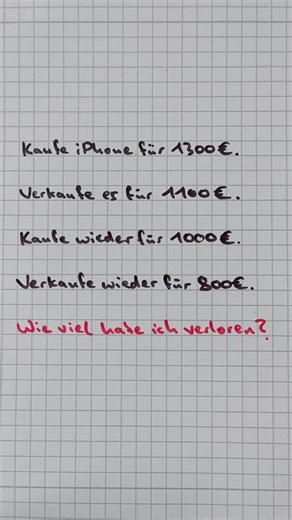 Kaufe iPhone für 1300€.
Verkaufe es für 1100€.
Kaufe wieder für 1000€.
Verkaufe wieder für 800€.
Wie viel habe ich verloren?